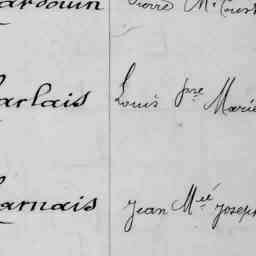 ardouin Pierre M. Const
arlais Louis pre Marie
arnais Jean Mié Joseph